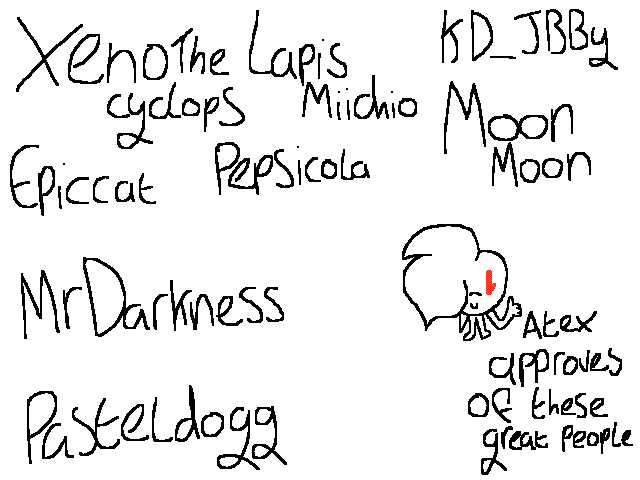 XenoThe Lapis
KD_JBBy
cyclops
Miichio
Moon
Moon
Epiccat
Pepsicola
MrDarkness
Atex
approves
of these
great People
Pasteldogg